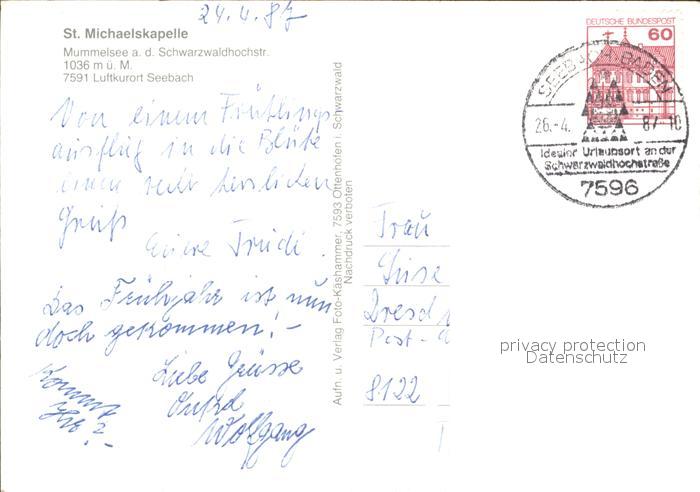 24.4.87
St. Michaelskapelle
Mummelsee a. d. Schwarzwaldhochstr.
1036 m ü. M.
7591 Luftkurort Seebach
Von einem Frühlings
ausflug in die Blüte
einen recht herzlichen
Gruß
Eure Trudi.
Das Frühjahr ist nun
doch gekommen! –
Liebe Grüsse
Wolfgang
Kommt
Ihr?
Aufn. u. Verlag Foto-Kashammer, 7593 Ottenhöfen i. Schwarzwald
Nachdruck verboten
DEUTSCHE BUNDESPOST
60
SEEBACH BADEN
26.-4. 87-10
Idealer Urlaubsort an der
Schwarzwaldhochstraße
7596
Frau
Dresd
Post-
8122
privacy protection
Datenschutz